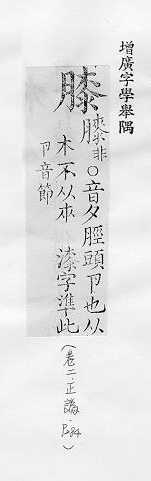 增廣字學舉隅
膝
非○音夕脛頭卩也从
木不从 漆字準此
卩音節
（卷二．正譌．